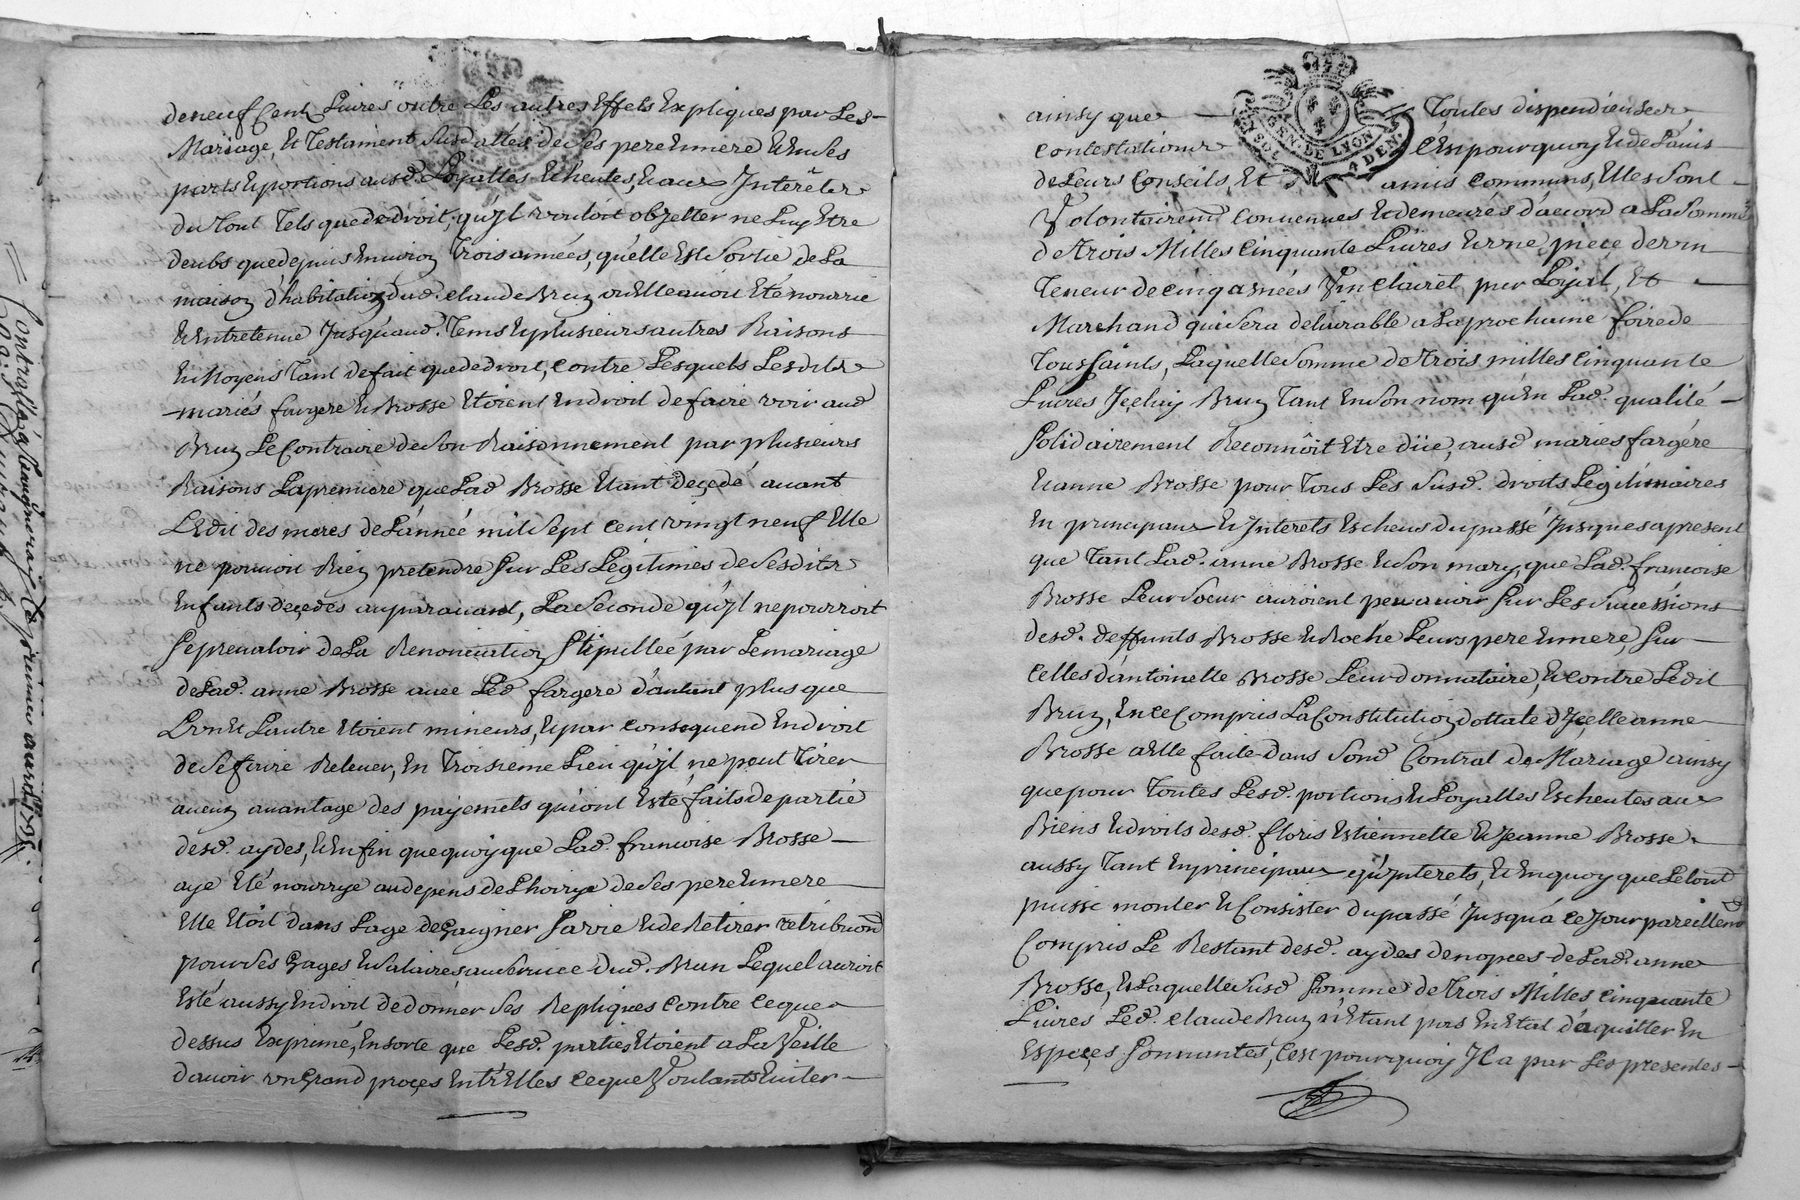 deneuf Cent Livres outre Les autres Effets Expliques par Les
Mariage, Et Testament Susdattés de Ses pere Emere Et En Ses
parts Eportions ausd. Loyalles Echeutes, Eaux Interêts
du tout tels que de droit, qu'jl vouloit objetter ne Luy Etre
deubs que depuis Environ Trois années, qu'elle Est Sortie de La
maison d'habitation dud. claude Brun ou Elle avoit Eté nourrie
Et Entretenue Jusqu'aud. Tems Et plusieurs autres Raisons
Et Moyens Tant de fait que de droit, contre Lesquels Lesdits
mariés fargere Et Brosse Etoient En droit de faire voir aud
Brun Le Contraire de Son Raisonnement par plusieurs
Raisons La premiere que Lad Brosse Etant deçedé avant
L'Edit des meres de L'année mil Sept cent vingt neuf Elle
ne pouvoit Rien pretendre Sur Les Legitimes de Sesdits
Enfants deçedés auparavant, La Seconde qu'jl ne pourroit
Se prevaloir de La Renonciation Stipullée par Le mariage
de Lad. anne Brosse avec Led fargere d'autant plus que
L'un Et L'autre Etoient mineurs, Et par consequend En droit
de Se faire Relever, En Troisieme Lieu qu'jl ne peut Tirer
aucun avantage des payemets qui ont Esté faits de partie
desd. aydes, Et Enfin que quoy que Lad. francoise Brosse
aye Eté nourrye audepens de L'hoirye de Ses pere Emere
Elle Etoit dans L'age de Gaigner Sa vie Et de Retirer retribuond
pour Ses Gages Et Salaires au Service dud. Brun Lequel auroit
Esté aussy En droit de donner Ses Repliques contre ce que
dessus Exprimé, En sorte que Lesd. parties Etoient a La Veille
d'avoir un Grand proçes Entr'Elles ce que Voulants Eviter
ainsy que Toutes dispendieuses
contestations C'Est pourquoy Et de L'avis
de Leurs Conseils, Et amis communs, Elles Sont
Volontairemt Convenues Et demeures d'accord a La Somme
de Trois Milles Cinquante Livres Et une pieçe de vin
Teneur de cinq anées Vin Clairet pur Loyal, Et
Marchand qui Sera delivrable a La prochaine foire de
Toussaints, Laquelle Somme de Trois milles Cinquante
Livres Jçeluy Brun Tant En Son nom qu'En Lad. qualité
Solidairement Reconnôit Etre düe, ausd maries fargére
Et anne Brosse pour Tous Les Susd. droits Legitimaires
En principaux Et Interets Escheus du passé Jusques a present
que Tant Lad. anne Brosse Et Son mary, que Lad. francoise
Brosse Leur Soeur auroient peu avoir Sur Les Successions
desd. deffunts Brosse Et Roche Leurs pere Emere, Sur
celles d'antoinette Brosse Leur donnataire, Et contre Ledit
Brun, En ce Compris La Constitution dottale d'Jçelle anne
Brosse a Elle faite dans Sond Contrat de Mariage ainsy
que pour Toutes Lesd. portions Et Loyalles Escheutes aux
Biens Et droits desd. floris Estiennette Et Jeanne Brosse
aussy Tant En principaux qu'jnterets, Et En quoy que Le tout
puisse monter Et Consister du passé Jusqu'à ce Jour pareillemt
Compris Le Restant desd. aydes de nopces de Lad anne
Brosse, Et Laquelle Susd Somme de Trois Milles cinquante
Livres Led. claude Brun n'Etant pas En Etat d'aquitter En
Espeçes Sonnantes, C'est pourquoy Jl a par Les presentes
GEN. DE LYON
4 DEN.